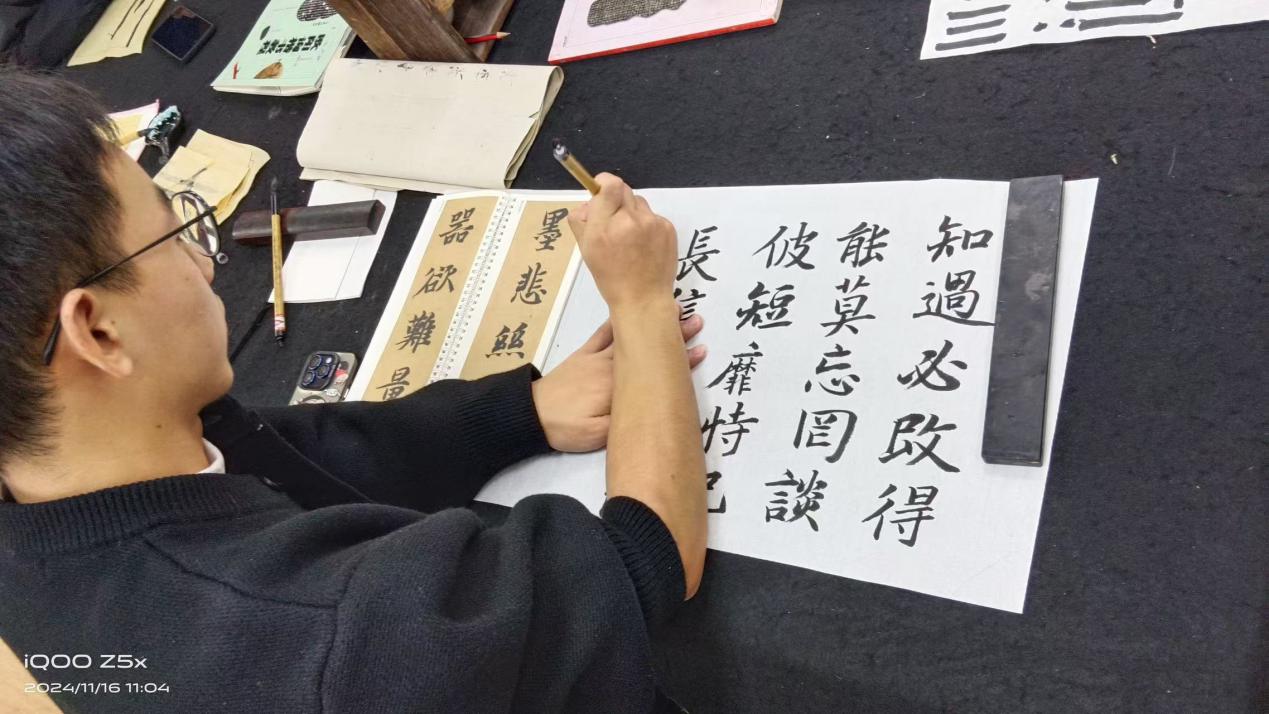 知過必改得
能莫忘罔談
彼短靡恃己
長信
墨悲絲
器欲難量
iQOO Z5x
2024/11/16 11:04